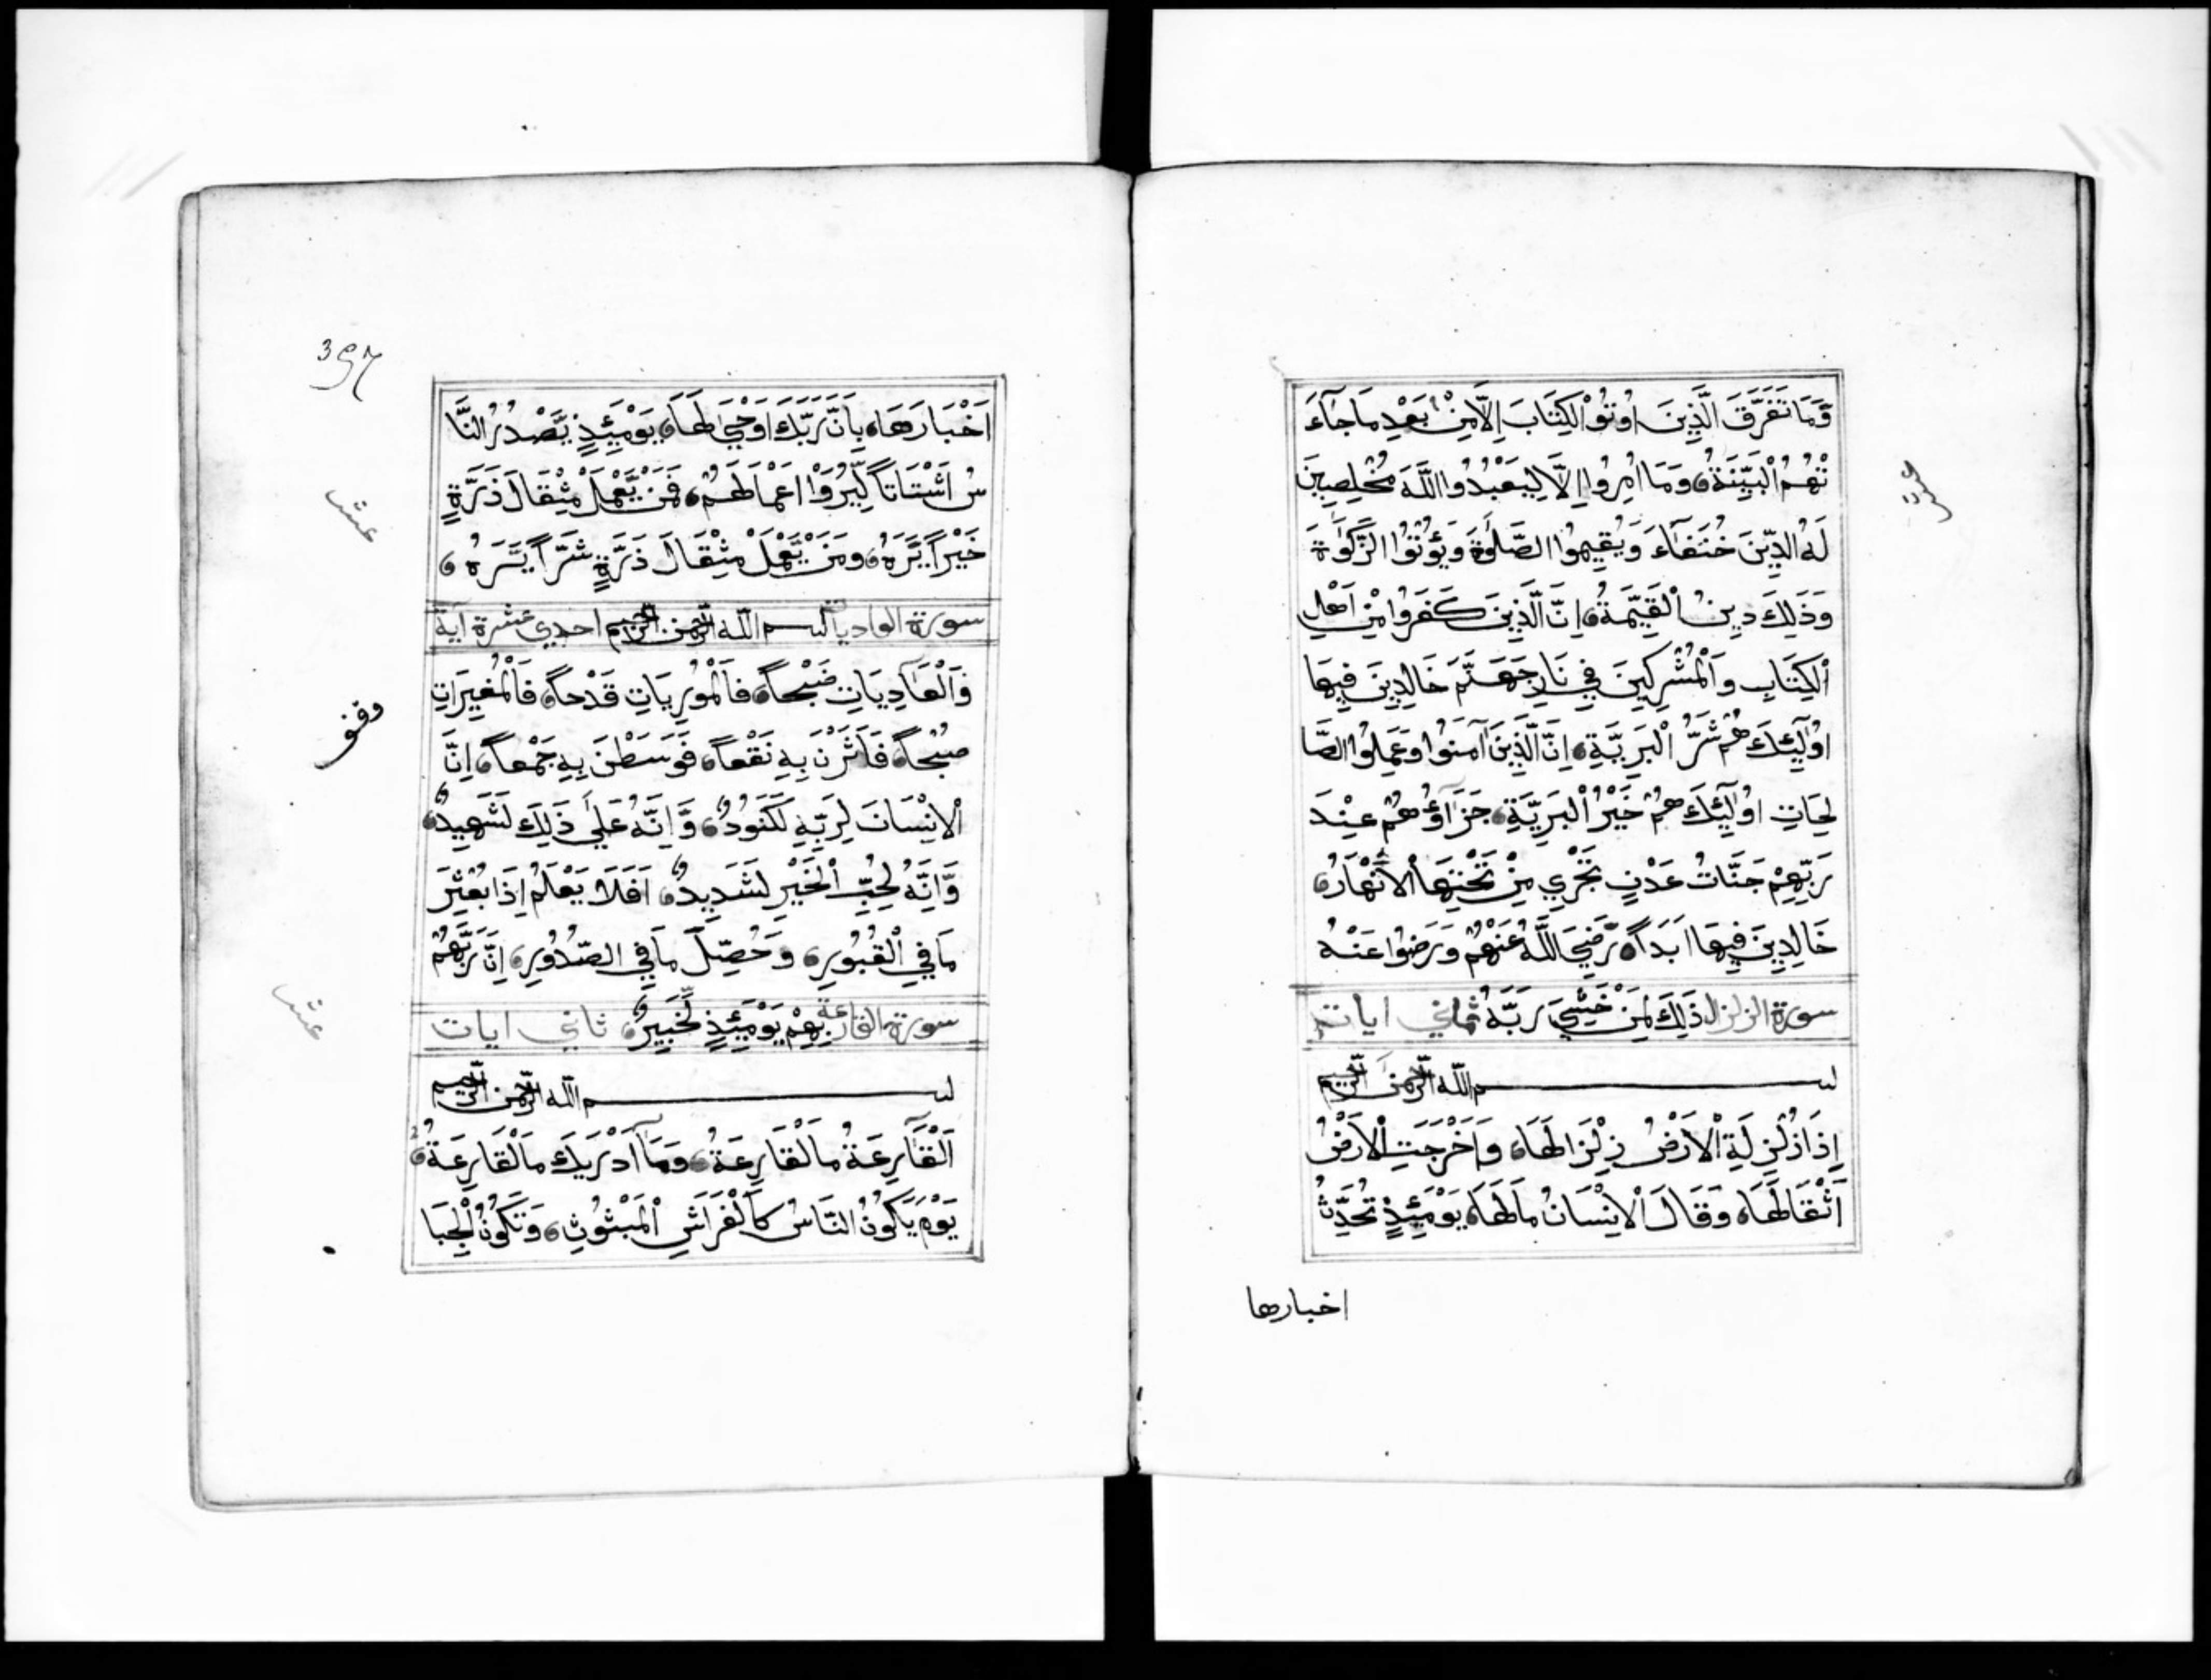 وَّمَا تَفَرَّقَ الَّذِينَ اُوتُوْ الْكِتَابَ اِلَّا مِنْ بَعْدِ مَا جَآءَ
تْهُمُ الْبَيِّنَةُ وَمَا اُمِرُوا اِلَّا لِيَعْبُدُوا اللّٰهَ مُخْلِصِينَ
لَهُ الدِّينَ حُنَفَآءَ وَيُقِيمُوا الصَّلٰوةَ وَيُؤْتُوا الزَّكٰوةَ
وَذَلِكَ دِينُ الْقَيِّمَةُ اِنَّ الَّذِينَ كَفَرُوا مِنْ اَهْلِ
الْكِتَابِ وَالْمُشْرِكِينَ فِي نَارِ جَهَنَّمَ خَالِدِينَ فِيهَا
اُولٰٓئِكَ هُمْ شَرُّ الْبَرِيَّةِ اِنَّ الَّذِينَ اٰمَنُوا وَعَمِلُوا الصَّا
لِحَاتِ اُولٰٓئِكَ هُمْ خَيْرُ الْبَرِيَّةِ جَزَآؤُهُمْ عِنْدَ
رَبِّهِمْ جَنَّاتُ عَدْنٍ تَجْرِي مِنْ تَحْتِهَا الْاَنْهَارُ
خَالِدِينَ فِيهَا اَبَدًا رَّضِيَ اللّٰهُ عَنْهُمْ وَرَضُوا عَنْهُ
سورة الزلزال ذَلِكَ لِمَنْ خَشِيَ رَبَّهُ ثماني ايات
بسم اللّه الرّحمن الرّحيم
اِذَا زُلْزِلَةِ الْاَرْضُ زِلْزَالَهَا وَاَخْرَجَتِ الْاَرْضُ
اَثْقَالَهَا وَقَالَ الْاِنْسَانُ مَالَهَا يَوْمَئِذٍ تُحَدِّثُ
اخبارها
عشر
397
اَخْبَارَهَا بِاَنَّ رَبَّكَ اَوْحَىٰ لَهَا يَوْمَئِذٍ يَّصْدُرُ النَّا
سُ اَشْتَاتًا لِّيُرَوْا اَعْمَالَهُمْ فَمَنْ يَّعْمَلْ مِثْقَالَ ذَرَّةٍ
خَيْرًا يَّرَهُ وَمَنْ يَّعْمَلْ مِثْقَالَ ذَرَّةٍ شَرًّا يَّرَهُ
سورة العاديات بسم اللّه الرّحمن الرّحيم احدي عشرة اية
وَالْعَادِيَاتِ ضَبْحًا فَالْمُورِيَاتِ قَدْحًا فَالْمُغِيرَاتِ
صُبْحًا فَاَثَرْنَ بِهِ نَقْعًا فَوَسَطْنَ بِهِ جَمْعًا اِنَّ
الْاِنْسَانَ لِرَبِّهِ لَكَنُودٌ وَّاِنَّهُ عَلَىٰ ذَلِكَ لَشَهِيدٌ
وَّاِنَّهُ لِحُبِّ الْخَيْرِ لَشَدِيدٌ اَفَلَا يَعْلَمُ اِذَا بُعْثِرَ
مَا فِي الْقُبُورِ وَحُصِّلَ مَا فِي الصُّدُورِ اِنَّ رَبَّهُمْ
سورة القارعة بِهِمْ يَوْمَئِذٍ لَّخَبِيرٌ ثاني ايات
بسم اللّه الرّحمن الرّحيم
اَلْقَارِعَةُ مَالْقَارِعَةُ وَمَآ اَدْرٰيكَ مَالْقَارِعَةُ
يَوْمَ يَكُونُ النَّاسُ كَالْفَرَاشِ الْمَبْثُوثِ وَتَكُونُ الْجِبَا
عشر
عشر